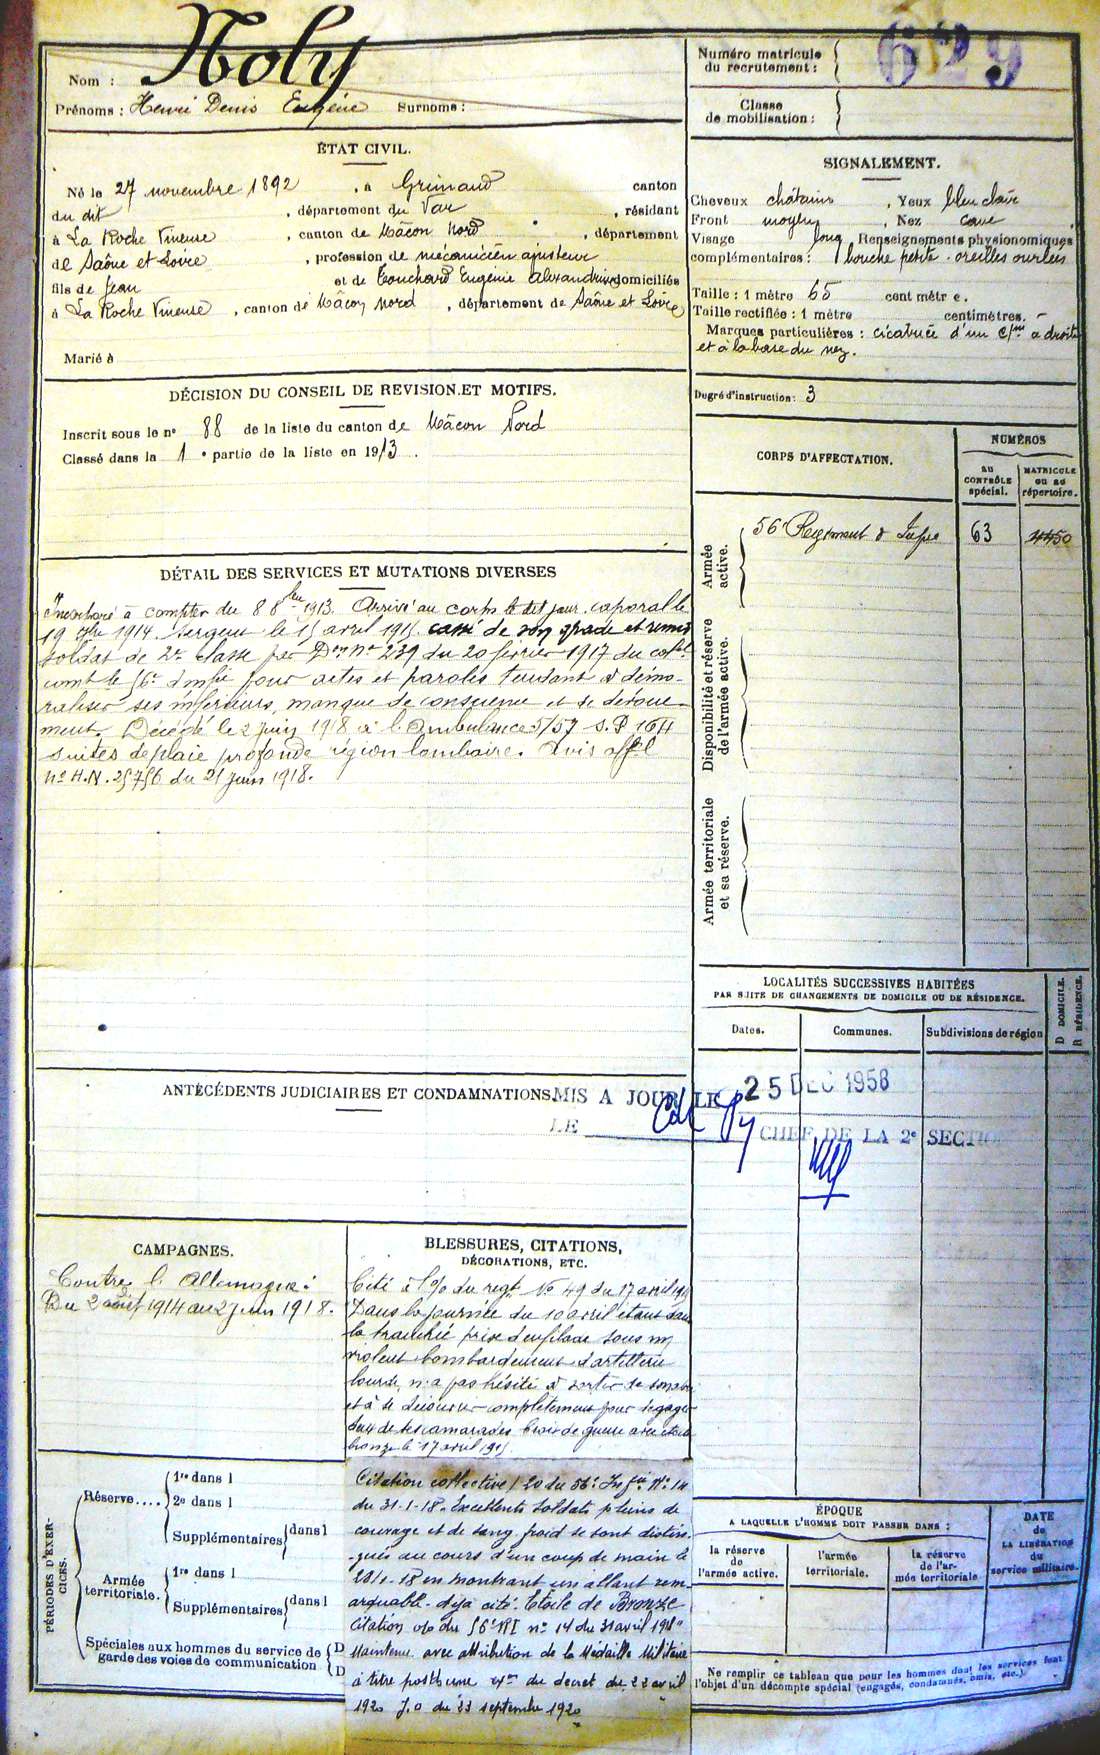 Nom : Noly
Prénoms : Henri Denis Eugène Surnoms :
ÉTAT CIVIL.
Né le 27 novembre 1892, à Grimaud canton
du dit, département du Var, résidant
à La Roche Vineuse, canton de Mâcon Nord, département
de Saône et Loire, profession de mécanicien ajusteur
fils de Jean et de Touchard Eugénie Alexandrine domiciliés
à La Roche Vineuse, canton de Mâcon Nord, département de Saône et Loire
Marié à
DÉCISION DU CONSEIL DE REVISION ET MOTIFS.
Inscrit sous le nº 88 de la liste du canton de Mâcon Nord
Classé dans la 1 e partie de la liste en 1913.
DÉTAIL DES SERVICES ET MUTATIONS DIVERSES
Incorporé à compter du 8 8bre 1913. Arrivé au corps le dit jour. caporal le
19 1914. Sergent le 15 avril 1915. cassé de son grade et remis
soldat de 2e classe par Don nº 239 du 20 février 1917 du
comt le 56e d'Infie pour actes et paroles tendant à démo-
raliser ses inférieurs, manque de conscience et de dévoue-
ment. Décédé le 2 juin 1918 à l'Ambulance 5/57 S.P. 164
suites de plaie profonde région lombaire. Avis offel
nº H.N. 25756 du 25 juin 1918.
ANTÉCÉDENTS JUDICIAIRES ET CONDAMNATIONS.
MIS A JOUR LE 25 DEC 1958
LE CHEF DE LA 2e SECTION
CAMPAGNES.
Contre l'Allemagne :
Du 2 août 1914 au 2 juin 1918.
BLESSURES, CITATIONS,
DÉCORATIONS, ETC.
Cité à l'o/o du regt Nº 49 du 17 avril 1915
"Dans la journée du 10 avril étant dans
la tranchée prise d'enfilade sous un
violent bombardement d'artillerie
lourde, n'a pas hésité à sortir de son abri
et à se découvrir complètement pour dégager
deux de ses camarades. Croix de guerre avec étoile
bronze le 17 avril 1915.
Citation collective 20 du 56e Infie Nº 14
du 31-1-18. Excellents soldats pleins de
courage et de sang froid se sont distin-
-gués au cours d'un coup de main le
28/1-18 en montrant un allant rem-
arquable - déjà cité. Etoile de Bronze
citation o/o du 56e RI nº 14 du 31 avril 1918"
Maintenue avec attribution de la Médaille Militaire
à titre posthume du décret du 22 avril
1920 J.O du 23 septembre 1920
PÉRIODES D'EXERCICES.
Réserve.... 1re dans l
2e dans l
Supplémentaires dans l
Armée territoriale. 1re dans l
Supplémentaires dans l
Spéciales aux hommes du service de D
garde des voies de communication D
Numéro matricule
du recrutement : 629
Classe
de mobilisation :
SIGNALEMENT.
Cheveux châtains, Yeux bleu clair
Front moyen, Nez cave
Visage long Renseignements physionomiques
complémentaires : bouche petite - oreilles ourlées
Taille : 1 mètre 65 centimètre.
Taille rectifiée : 1 mètre centimètres.
Marques particulières : cicatrice d'un à droite
et à la base du nez.
Degré d'instruction : 3
CORPS D'AFFECTATION.
NUMÉROS
AU CONTRÔLE spécial.
MATRICULE ou au répertoire.
Armée active.
56e Régiment d'Infie 63 4450
Disponibilité et réserve de l'armée active.
Armée territoriale et sa réserve.
LOCALITÉS SUCCESSIVES HABITÉES
PAR SUITE DE CHANGEMENTS DE DOMICILE OU DE RÉSIDENCE.
Dates. Communes. Subdivisions de région
D DOMICILE.
R RÉSIDENCE.
ÉPOQUE
A LAQUELLE L'HOMME DOIT PASSER DANS :
la réserve de l'armée active.
l'armée territoriale.
la réserve de l'armée territoriale
DATE de LA LIBÉRATION du service militaire.
Ne remplir ce tableau que pour les hommes dont les services font
l'objet d'un décompte spécial (engagés, condamnés, omis, etc.).